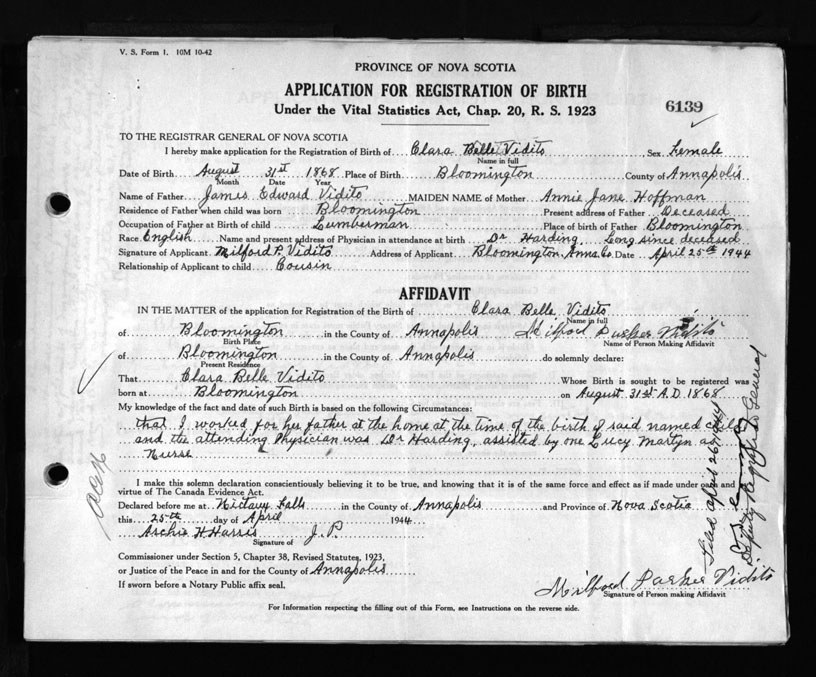 V. S. Form 1. 10M 10-42
PROVINCE OF NOVA SCOTIA
APPLICATION FOR REGISTRATION OF BIRTH
Under the Vital Statistics Act, Chap. 20, R. S. 1923
6139
TO THE REGISTRAR GENERAL OF NOVA SCOTIA
I hereby make application for the Registration of Birth of Clara Belle Vidito Sex Female
Name in full
Date of Birth August 31st 1868 Place of Birth Bloomington County of Annapolis
Month Date Year
Name of Father James Edward Vidito MAIDEN NAME of Mother Annie Jane Hoffman
Residence of Father when child was born Bloomington Present address of Father Deceased
Occupation of Father at Birth of child Lumberman Place of birth of Father Bloomington
Race English Name and present address of Physician in attendance at birth Dr Harding Long since deceased
Signature of Applicant Milford P. Vidito Address of Applicant Bloomington Anna. Co. Date April 25th 1944
Relationship of Applicant to child Cousin
AFFIDAVIT
IN THE MATTER of the application for Registration of the Birth of Clara Belle Vidito
Name in full
of Bloomington in the County of Annapolis Milford Parker Vidito
Birth Place Name of Person Making Affidavit
of Bloomington in the County of Annapolis do solemnly declare:
Present Residence
That Clara Belle Vidito Whose Birth is sought to be registered was
born at Bloomington on August 31st A.D 1868
My knowledge of the fact and date of such Birth is based on the following Circumstances:
that I worked for her father at the home at the time of the birth of said named child
and the attending Physician was Dr Harding, assisted by one Lucy Martyn as
Nurse
I make this solemn declaration conscientiously believing it to be true, and knowing that it is of the same force and effect as if made under oath and
virtue of The Canada Evidence Act.
Declared before me at Nictaux Falls in the County of Annapolis and Province of Nova Scotia
this 25th day of April 1944
Archie H Harris J. P.
Signature of
Commissioner under Section 5, Chapter 38, Revised Statutes, 1923,
or Justice of the Peace in and for the County of Annapolis
If sworn before a Notary Public affix seal.
Milford Parker Vidito
Signature of Person making Affidavit
For Information respecting the filling out of this Form, see Instructions on the reverse side.
Filed April 26 1944
Deputy Registrar General